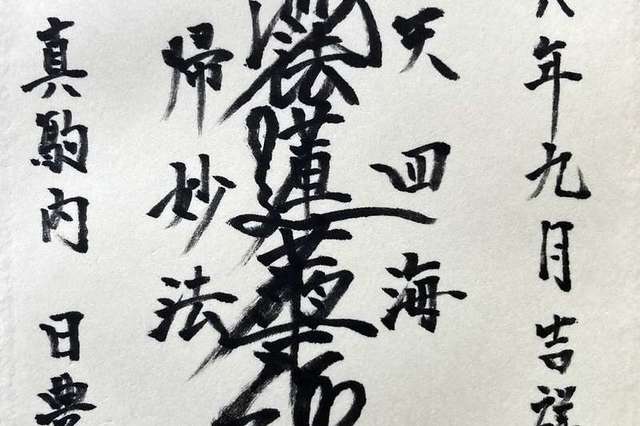 年九月吉祥
天四海
法蓮華
帰妙法
真駒内 日豊